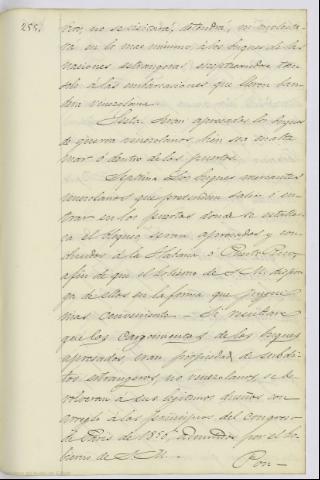 255.
no se visitará, detendrá, ni molesta-
rá en lo mas mínimo, á los buques de las
naciones estrangeras, esceptuandose tan
solo á las embarcaciones que lleven ban
dera venezolana.
Sesta. Seran apresados los buques
de guerra venezolanos, bien sea en alta
mar ó dentro de los puertos.
Septima. Los buques mercantes
venezolanos que pretendan salir ó en-
trar en los puertos donde se establez-
ca el bloqueo seran apresados y con-
ducidos á la Habana ó Puerto Rico
afin de que el Gobierno de S. M. dispon
ga de ellos en la forma que juzgue
mas conveniente. - Si resultare
que los cargamentos de los buques
apresados, eran propiedad de subdi-
tos estrangeros, no venezolanos se de-
volveran á sus legitimos dueños con
arreglo á los principios del Congreso
de Paris de 1856, admitidos por el Go-
bierno de S. M. -
Pon-